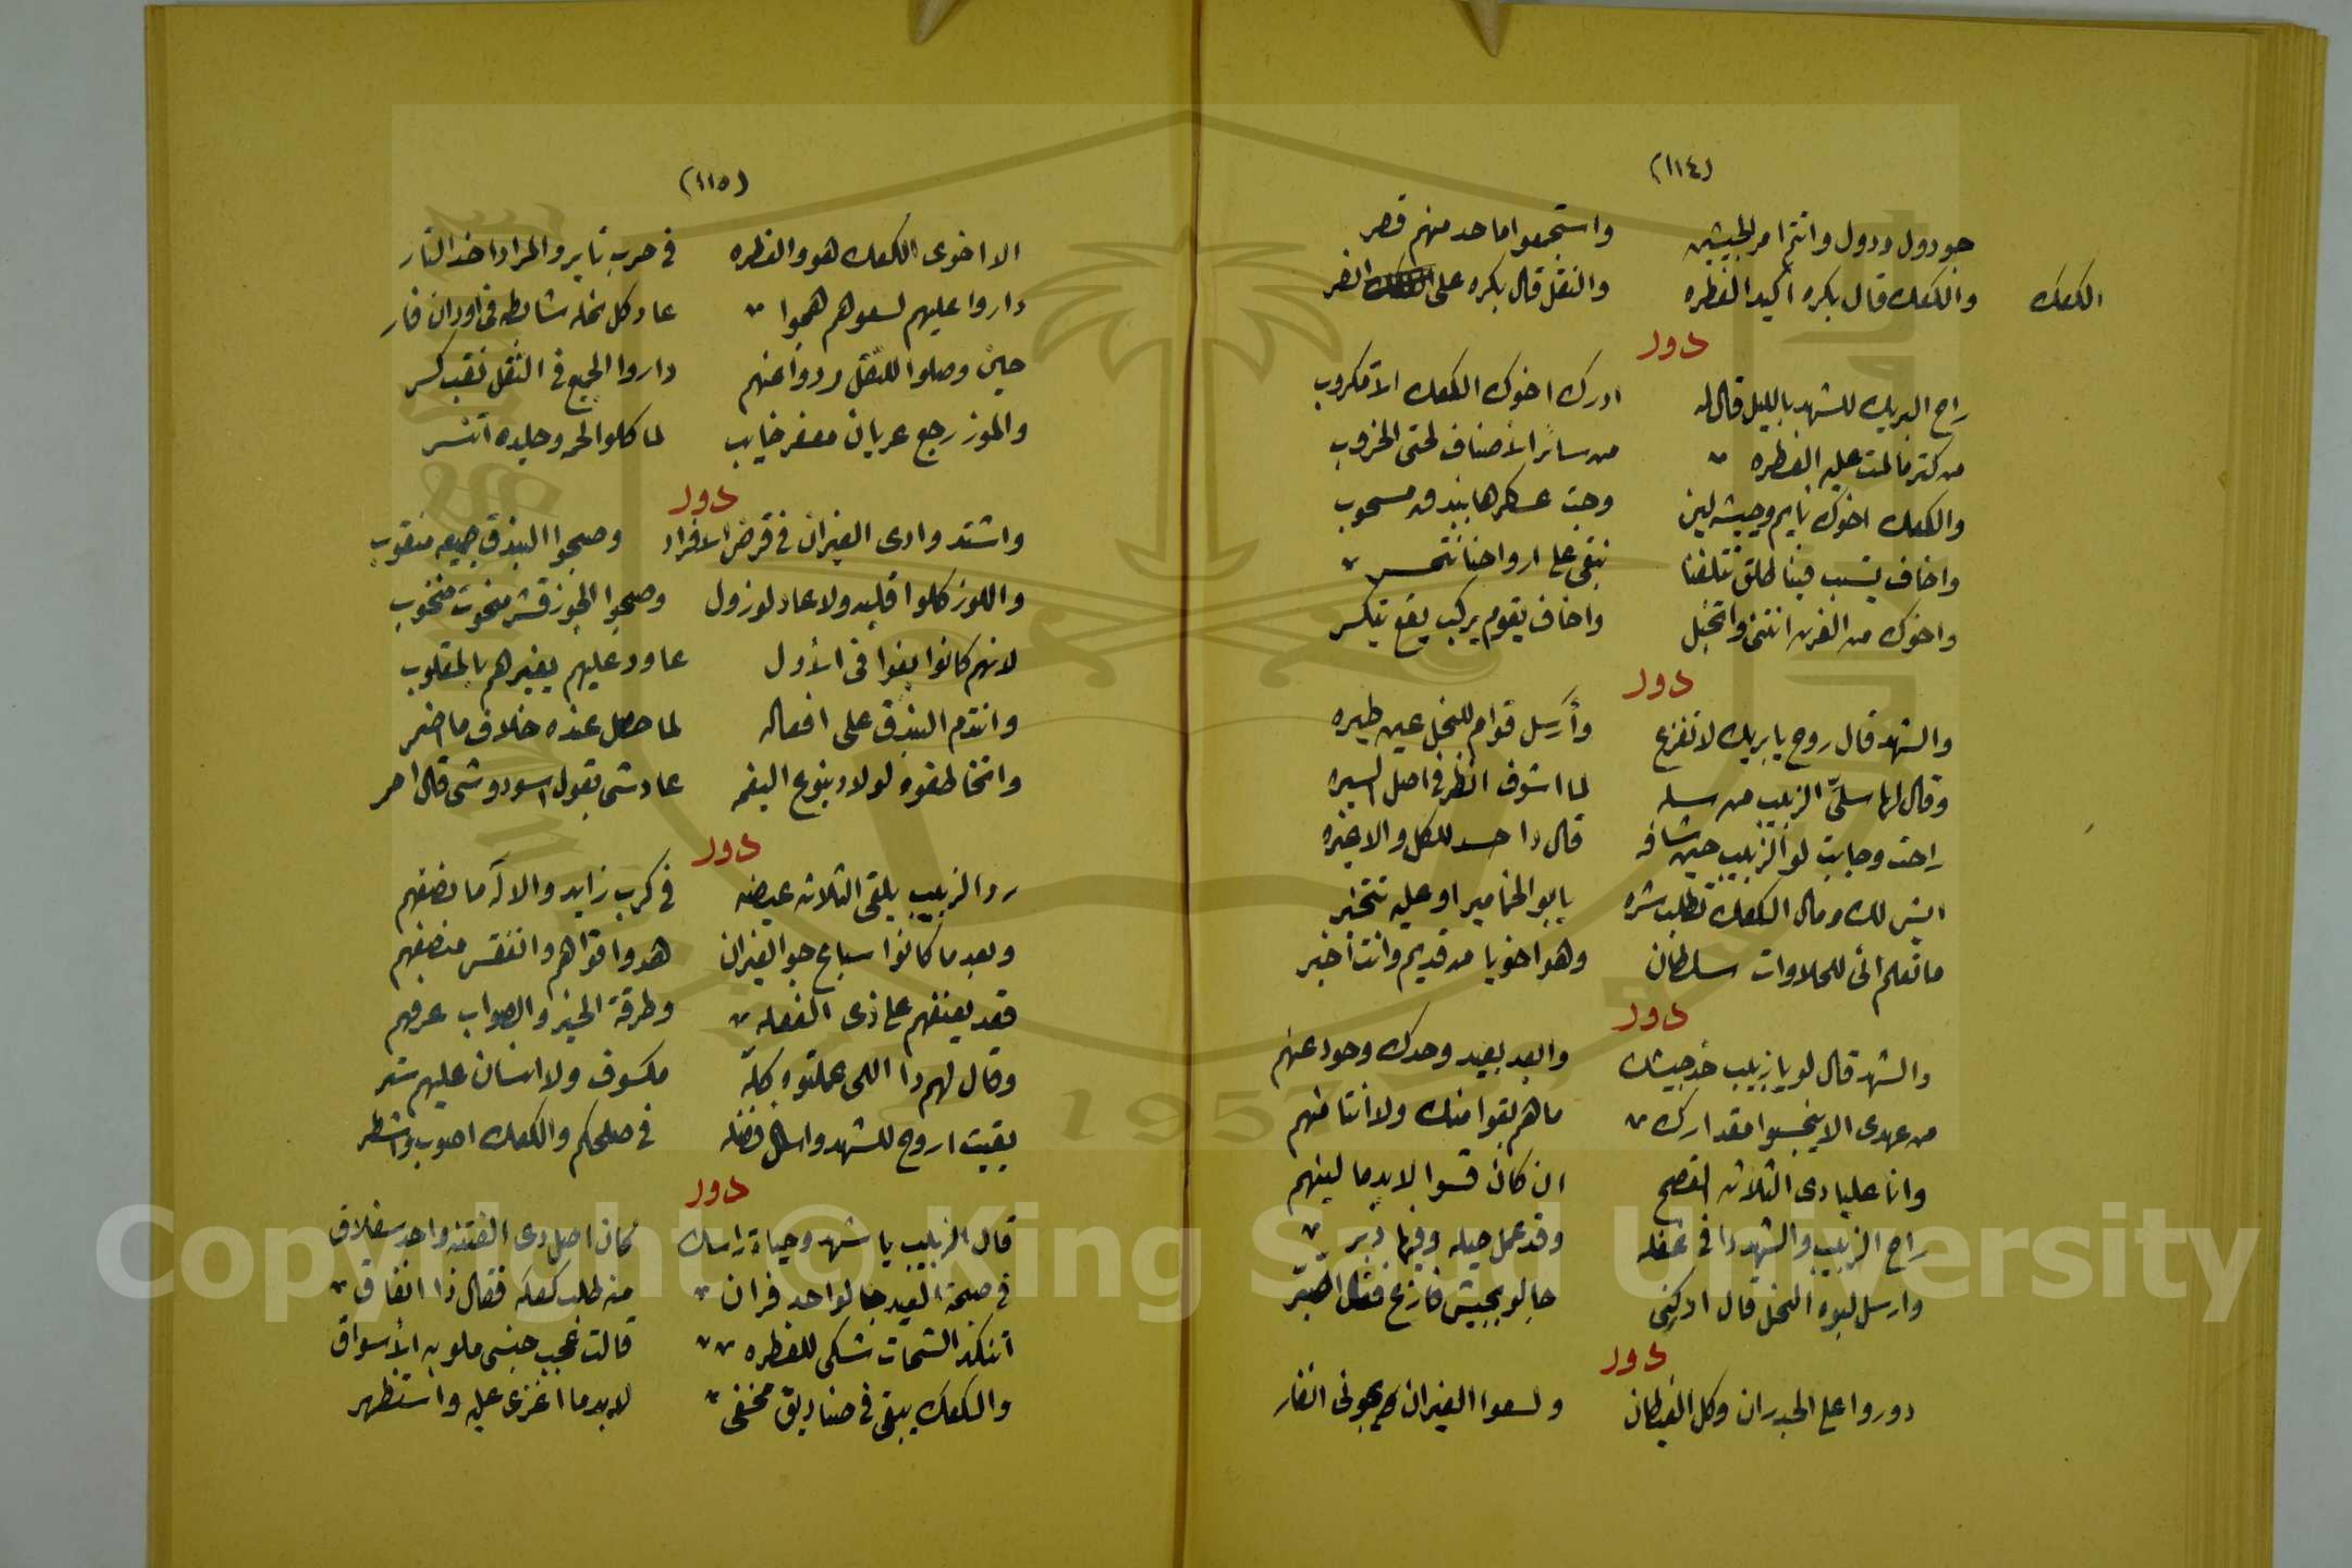 (١١٤)
جو دول ودول وانتم امر الجيشين واستجمعوا ما حد منهم قصر
والكعك قال بكره اكيد الفطره والنقل قال بكره على انضر
الكعك
دور
راح البريك للشهد بالليل قال له ادرك اخوك الكعك الا مكروب
من كتر مالمت عليه الفطره من سائر الأصناف لحتى الخروب
والكعك اخوك نايم وجيشه لين وجت عسكرها ببندقه مسحوب
واخاف يتسبب فينا طلق تتلفنا نبقى على ارواحنا نتحسر
واخوك من الفرن انتنى واتخبل واخاف يقوم يركب يقع يتكسر
دور
والشهد قال روح يا بريك لا تفزع وأرسل قوام للنخل عين طيره
وقال لها سلي الزبيب من سله لما اشوف انظر في اصل السيره
راحت وجابت لو الزبيب حين شافه قال دا حسد للكل والا غيره
ايش لك ومال الكعك تطلب شره يابو الخامير او عليه تتخبر
ما تعلم اني للحلاوات سلطان وهو اخويا من قديم وانت اخبر
دور
والشهد قال لو يا زبيب خد جيشك وابعد بعيد وحدك وحود عنهم
من عهدي الا يبخسوا مقدارك ما هم بقوا منك ولا أنتا منهم
وانا عليا دي التلاته افصح ان كان قسوا لابد ما لينهم
راح الزبيب والشهد دا في غفله وقد عمل حيله وفيها دبر
وارسل لبوه النخل قال ادركني جا لو بجيش فازع فقال اصبر
دور
دوروا على الجدران وكل الغيطان ولسعوا الفيران في انفار
(١١٥)
الا اخوى الكعك هو والفطره في حرب ثاير والمراد اخد الثار
داروا عليهم لسعوهم هجوا عاد كل نحله شابطه في اودان فار
حين وصلوا للنقل ردوا عنهم داروا الجميع في النقل نقب كسر
والموز رجع عريان معفر خايب لما كلوا لحمه وجلده اتنسر
دور
واشتد وادى الفيران في قرض الافراد وصبحوا البندق جميعه منقوب
واللوز كلوا قلبه ولا عاد لوزول وصبحوا الجوز قشر منخوت منخوب
لانهم كانوا بغوا في الأول عاود عليهم بغيرهم بالمقلوب
واندم البندق على افعاله لما حصل عنده خلاف ما اضمر
واتخاطفوه لولاد بنوع البغمه عاد شى بقول اسود وشى قال احمر
دور
رد الزبيب يلقى التلاته عيضه في كرب زايد والا له ما يضيفهم
وبعد ما كانوا سباع جوا الفيران هدوا قواهم والنقس منصفهم
قعد يعنفهم على ذى الفعله وطرقة الخير والصواب عرفهم
وقال لهم دا اللى عملتوه كله مكسوف ولا انسان عليهم ستر
بقيت اروح للشهد واسال فضله في صلحكم والكعك اصوب واشطر
دور
قال الزبيب يا شهد وحياة راسك كان اصل دى الفتنه واحد سقلاق
في صبحة العيد جا لواحد فران منه طلب كعكه فقال ذا انفاق
اتنكد الشحات شكى للفطره قالت عجب جنسى ملو به الأسواق
والكعك يبقى في صناديق مخفى لابد ما اغزى عليه واستظهر
Copyright © King Saud University
1957